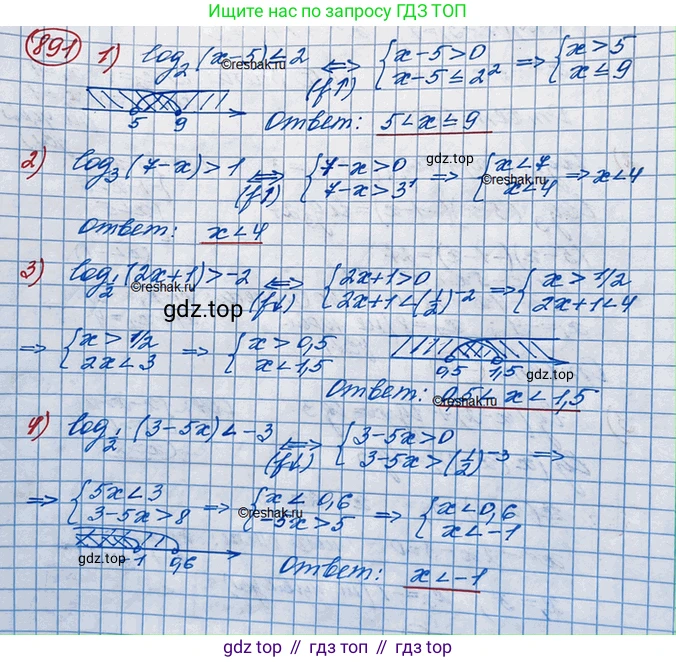 Ищите нас по запросу ГДЗ ТОП
891 1) log₂(x-5) ≤ 2 ⟺ (f↑) {x-5>0 x-5≤2² ⇒ {x>5 x≤9
©reshak.ru
5 9 Ответ: 5<x≤9
2) log₃(7-x)>1 ⟺ (f↑) {7-x>0 7-x>3¹ ⇒ {x<7 x<4 ⇒ x<4
gdz.top
©reshak.ru
Ответ: x<4
3) log_{1/2}(2x+1)>-2 ⟺ (f↓) {2x+1>0 2x+1<(1/2)⁻² ⇒ {x>1/2 2x+1<4
©reshak.ru
gdz.top
⇒ {x>1/2 2x<3 ⇒ {x>0,5 x<1,5
0,5 1,5
gdz.top
Ответ: 0,5<x<1,5
©reshak.ru
4) log_{1/2}(3-5x)<-3 ⟺ (f↓) {3-5x>0 3-5x>(1/2)⁻³ ⇒
⇒ {5x<3 3-5x>8 ⇒ {x<0,6 -5x>5 ⇒ {x<0,6 x<-1
©reshak.ru
gdz.top
-1 0,6 Ответ: x<-1
gdz.top // гдз.топ // gdz.top